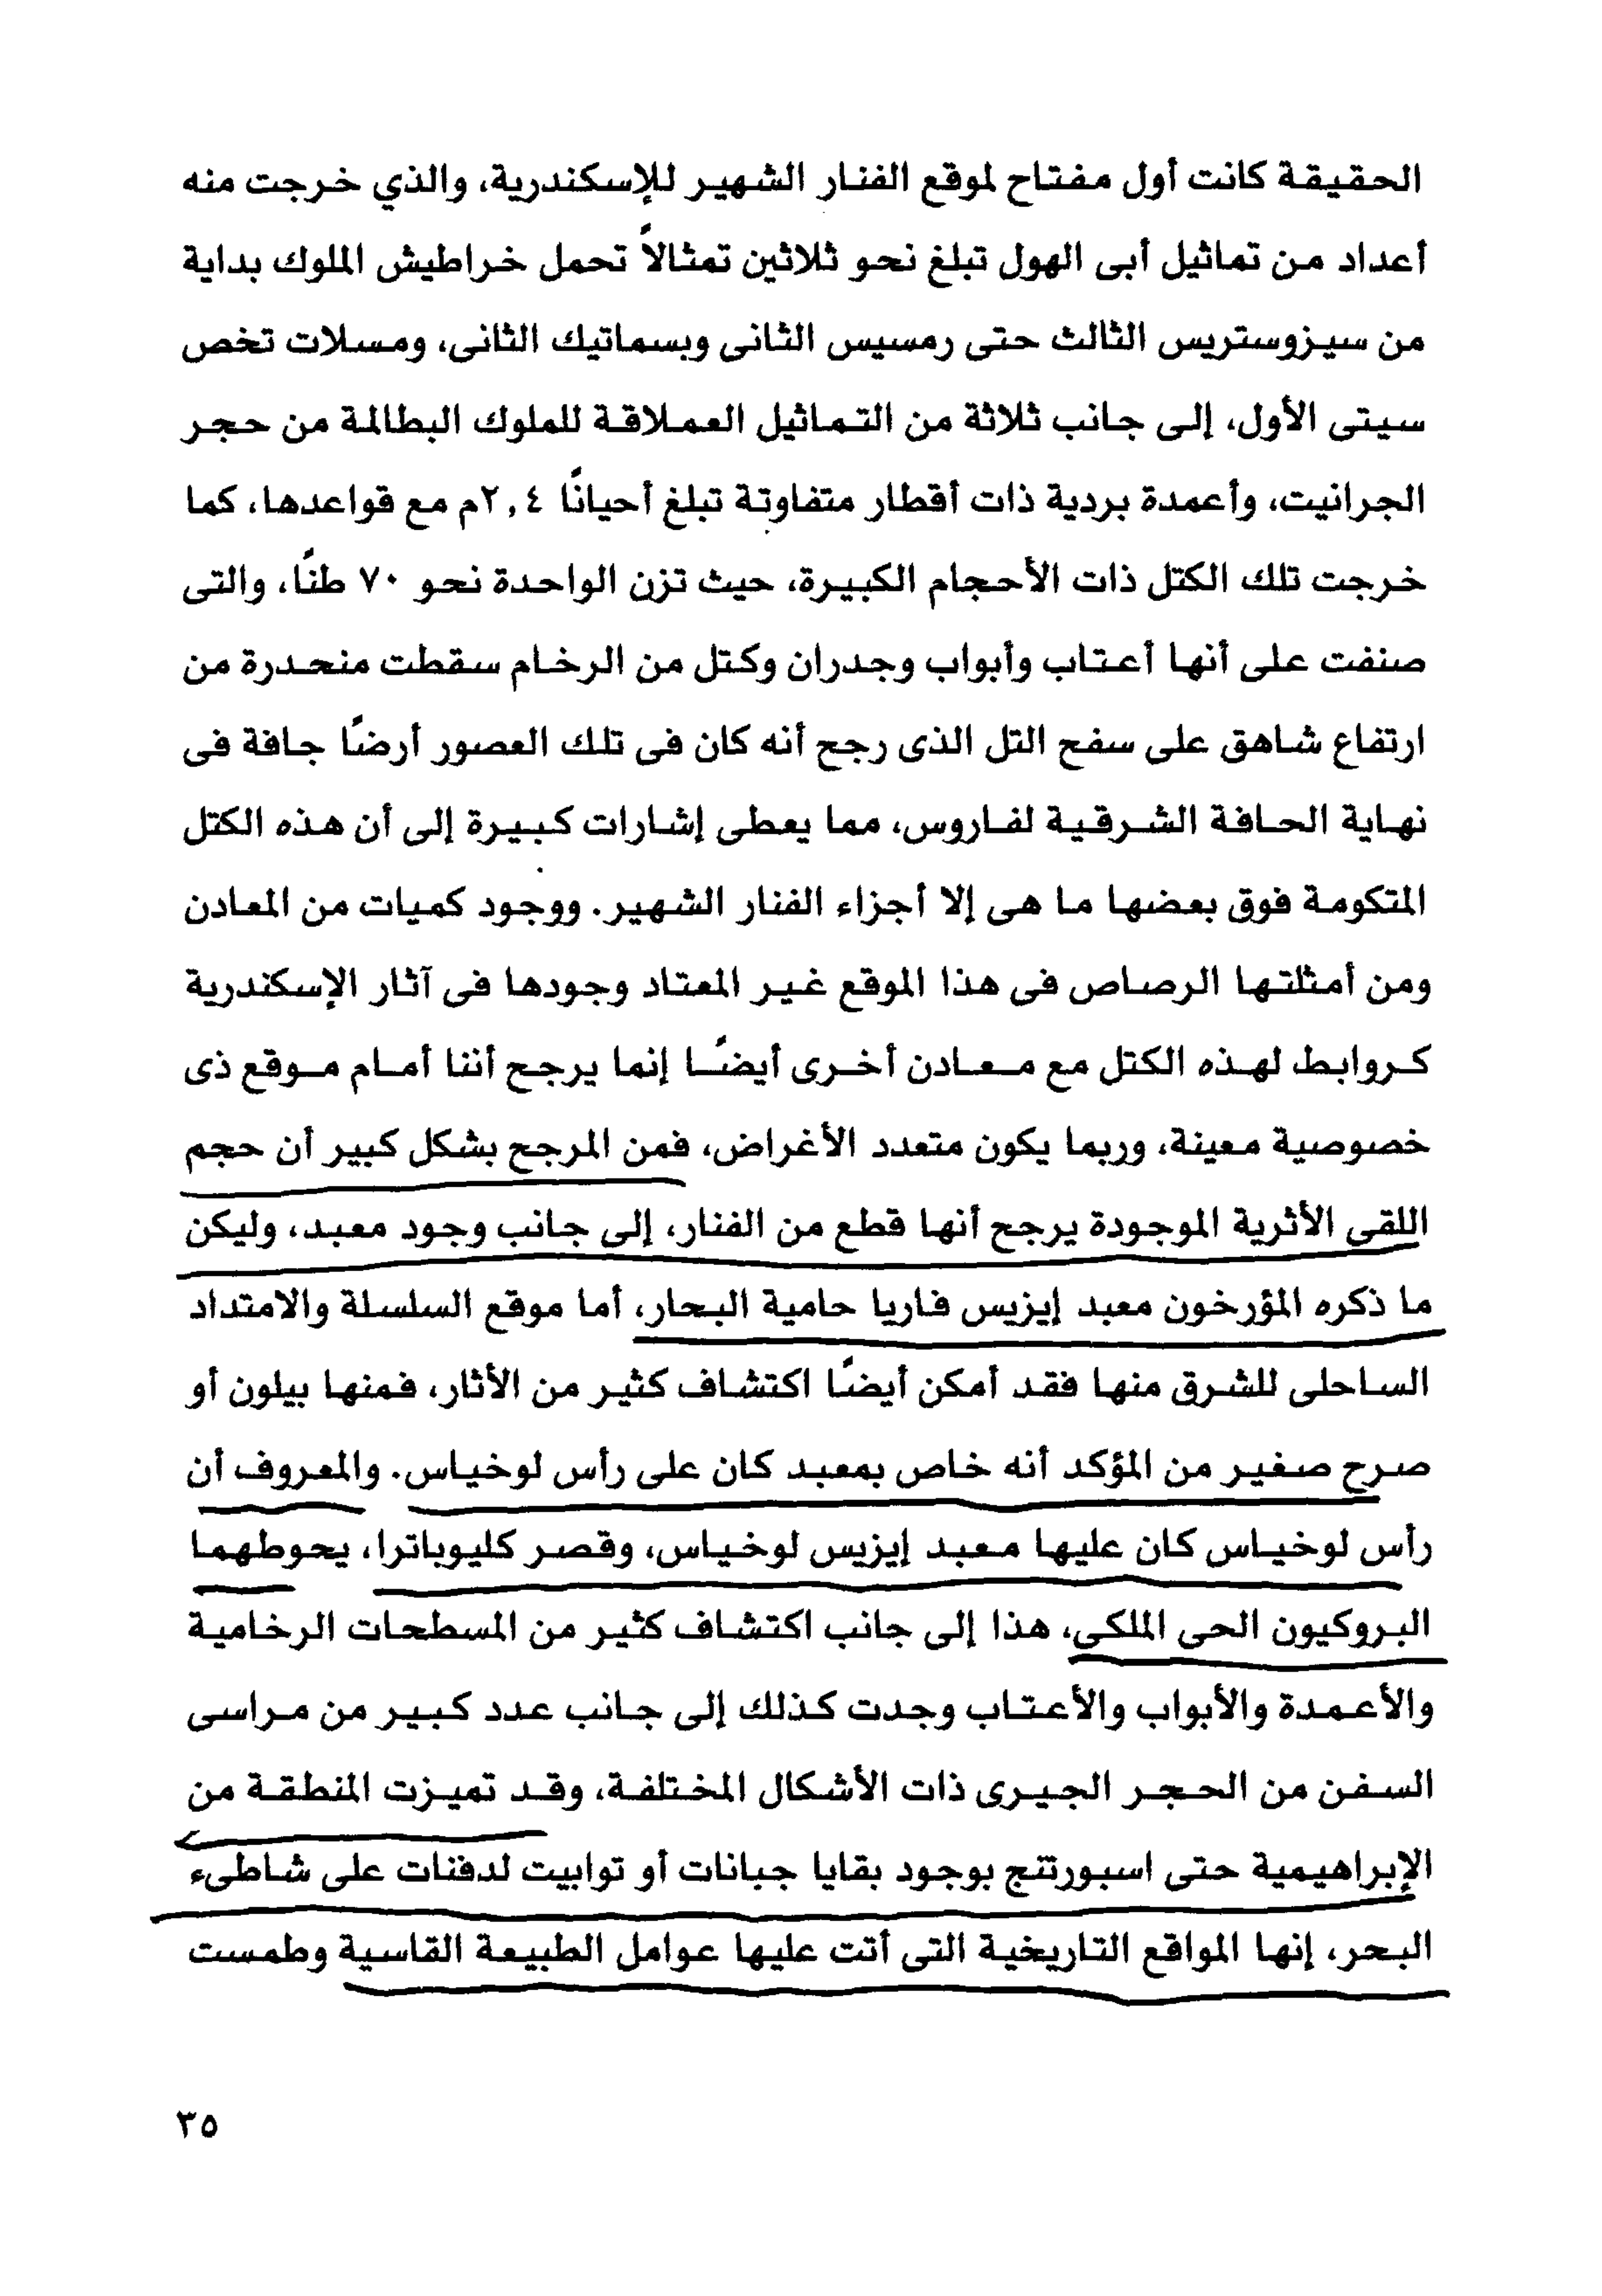 الحقيقة كانت أول مفتاح لموقع الفنار الشهير للإسكندرية، والذي خرجت منه
أعداد من تماثيل أبى الهول تبلغ نحو ثلاثين تمثالاً تحمل خراطيش الملوك بداية
من سيزوستريس الثالث حتى رمسيس الثانى وبسماتيك الثانى، ومسلات تخص
سيتى الأول، إلى جانب ثلاثة من التماثيل العملاقة للملوك البطالمة من حجر
الجرانيت، وأعمدة بردية ذات أقطار متفاوتة تبلغ أحيانًا ٢,٤م مع قواعدها، كما
خرجت تلك الكتل ذات الأحجام الكبيرة، حيث تزن الواحدة نحو ٧٠ طنًا، والتى
صنفت على أنها أعتاب وأبواب وجدران وكتل من الرخام سقطت منحدرة من
ارتفاع شاهق على سفح التل الذى رجح أنه كان فى تلك العصور أرضًا جافة فى
نهاية الحافة الشرقية لفاروس، مما يعطى إشارات كبيرة إلى أن هذه الكتل
المتكومة فوق بعضها ما هى إلا أجزاء الفنار الشهير. ووجود كميات من المعادن
ومن أمثلتها الرصاص فى هذا الموقع غير المعتاد وجودها فى آثار الإسكندرية
كروابط لهذه الكتل مع معادن أخرى أيضًا إنما يرجح أننا أمام موقع ذى
خصوصية معينة، وربما يكون متعدد الأغراض، فمن المرجح بشكل كبير أن حجم
اللقى الأثرية الموجودة يرجح أنها قطع من الفنار، إلى جانب وجود معبد، وليكن
ما ذكره المؤرخون معبد إيزيس فاريا حامية البحار، أما موقع السلسلة والامتداد
الساحلى للشرق منها فقد أمكن أيضًا اكتشاف كثير من الأثار، فمنها بيلون أو
صرح صغير من المؤكد أنه خاص بمعبد كان على رأس لوخياس. والمعروف أن
رأس لوخياس كان عليها معبد إيزيس لوخياس، وقصر كليوباترا، يحوطهما
البروكيون الحى الملكى، هذا إلى جانب اكتشاف كثير من المسطحات الرخامية
والأعمدة والأبواب والأعتاب وجدت كذلك إلى جانب عدد كبير من مراسى
السفن من الحجر الجيرى ذات الأشكال المختلفة، وقد تميزت المنطقة من
الإبراهيمية حتى اسبورتنج بوجود بقايا جبانات أو توابيت لدفنات على شاطىء
البحر، إنها المواقع التاريخية التى أتت عليها عوامل الطبيعة القاسية وطمست
٣٥